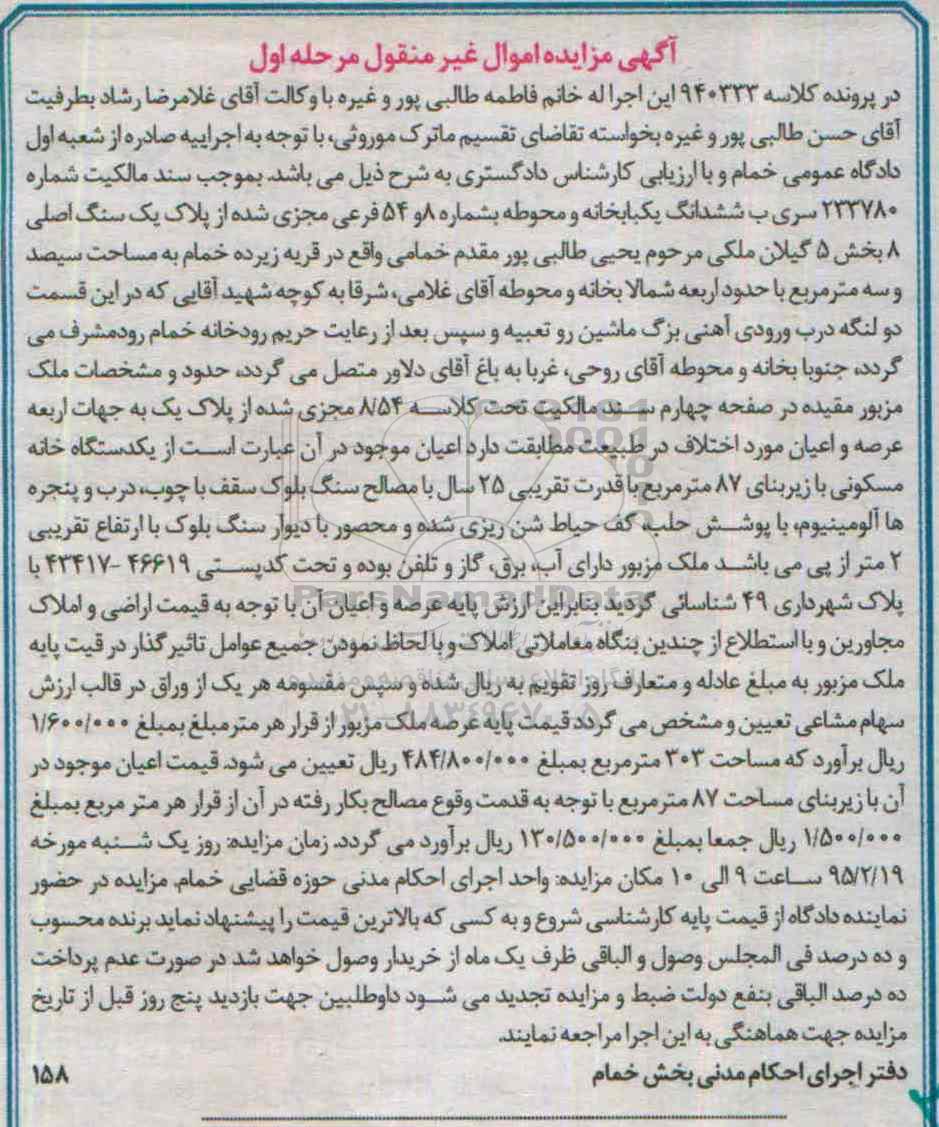 آگهی مزایده اموال غیر منقول مرحله اول
در پرونده کلاسه ۹۴۰۳۳۳ این اجرا له خانم فاطمه طالبی پور و غیره با وکالت آقای غلامرضا رشاد بطرفیت
آقای حسن طالبی پور و غیره بخواسته تقاضای تقسیم ماترک موروثی، با توجه به اجراییه صادره از شعبه اول
دادگاه عمومی خمام و با ارزیابی کارشناس دادگستری به شرح ذیل می باشد. بموجب سند مالکیت شماره
۲۳۳۷۸۰ سری ب ششدانگ یکبابخانه و محوطه بشماره ۸و ۵۴ فرعی مجزی شده از پلاک یک سنگ اصلی
۸ بخش ۵ گیلان ملکی مرحوم یحیی طالبی پور مقدم خمامی واقع در قریه زیرده خمام به مساحت سیصد
و سه مترمربع با حدود اربعه شمالا بخانه و محوطه آقای غلامی، شرقا به کوچه شهید آقایی که در این قسمت
دو لنگه درب ورودی آهنی بزگ ماشین رو تعبیه و سپس بعد از رعایت حریم رودخانه خمام رودمشرف می
گردد، جنوبا بخانه و محوطه آقای روحی، غربا به باغ آقای دلاور متصل می گردد، حدود و مشخصات ملک
مزبور مقیده در صفحه چهارم سند مالکیت تحت کلاسه ۸/۵۴ مجزی شده از پلاک یک به جهات اربعه
عرصه و اعیان مورد اختلاف در طبیعت مطابقت دارد اعیان موجود در آن عبارت است از یکدستگاه خانه
مسکونی با زیربنای ۸۷ مترمربع با قدرت تقریبی ۲۵ سال با مصالح سنگ بلوک سقف با چوب، درب و پنجره
ها آلومینیوم، با پوشش حلب، کف حیاط شن ریزی شده و محصور با دیوار سنگ بلوک با ارتفاع تقریبی
۲ متر از پی می باشد ملک مزبور دارای آب، برق، گاز و تلفن بوده و تحت کدپستی ۴۶۶۱۹ -۴۳۴۱۷ با
پلاک شهرداری ۴۹ شناسائی گردید بنابراین ارزش پایه عرصه و اعیان آن با توجه به قیمت اراضی و املاک
مجاورین و با استطلاع از چندین بنگاه معاملاتی املاک و با لحاظ نمودن جمیع عوامل تاثیر گذار در قیت پایه
ملک مزبور به مبلغ عادله و متعارف روز تقویم به ریال شده و سپس مقسومه هر یک از وراق در قالب ارزش
سهام مشاعی تعیین و مشخص می گردد قیمت پایه عرصه ملک مزبور از قرار هر متر مبلغ بمبلغ ۱/۶۰۰/۰۰۰
ریال برآورد که مساحت ۳۰۳ مترمربع بمبلغ ۴۸۴/۸۰۰/۰۰۰ ریال تعیین می شود. قیمت اعیان موجود در
آن با زیربنای مساحت ۸۷ مترمربع با توجه به قدمت وقوع مصالح بکار رفته در آن از قرار هر متر مربع بمبلغ
۱/۵۰۰/۰۰۰ ریال جمعا بمبلغ ۱۳۰/۵۰۰/۰۰۰ ریال برآورد می گردد. زمان مزایده: روز یک شنبه مورخه
۹۵/۲/۱۹ ساعت ۹ الی ۱۰ مکان مزایده: واحد اجرای احکام مدنی حوزه قضایی خمام. مزایده در حضور
نماینده دادگاه از قیمت پایه کارشناسی شروع و به کسی که بالاترین قیمت را پیشنهاد نماید برنده محسوب
و ده درصد فی المجلس وصول و الباقی ظرف یک ماه از خریدار وصول خواهد شد در صورت عدم پرداخت
ده درصد الباقی بنفع دولت ضبط و مزایده تجدید می شود داوطلبین جهت بازدید پنج روز قبل از تاریخ
مزایده جهت هماهنگی به این اجرا مراجعه نمایند.
دفتر اجرای احکام مدنی بخش خمام ۱۵۸
ParsNamadData